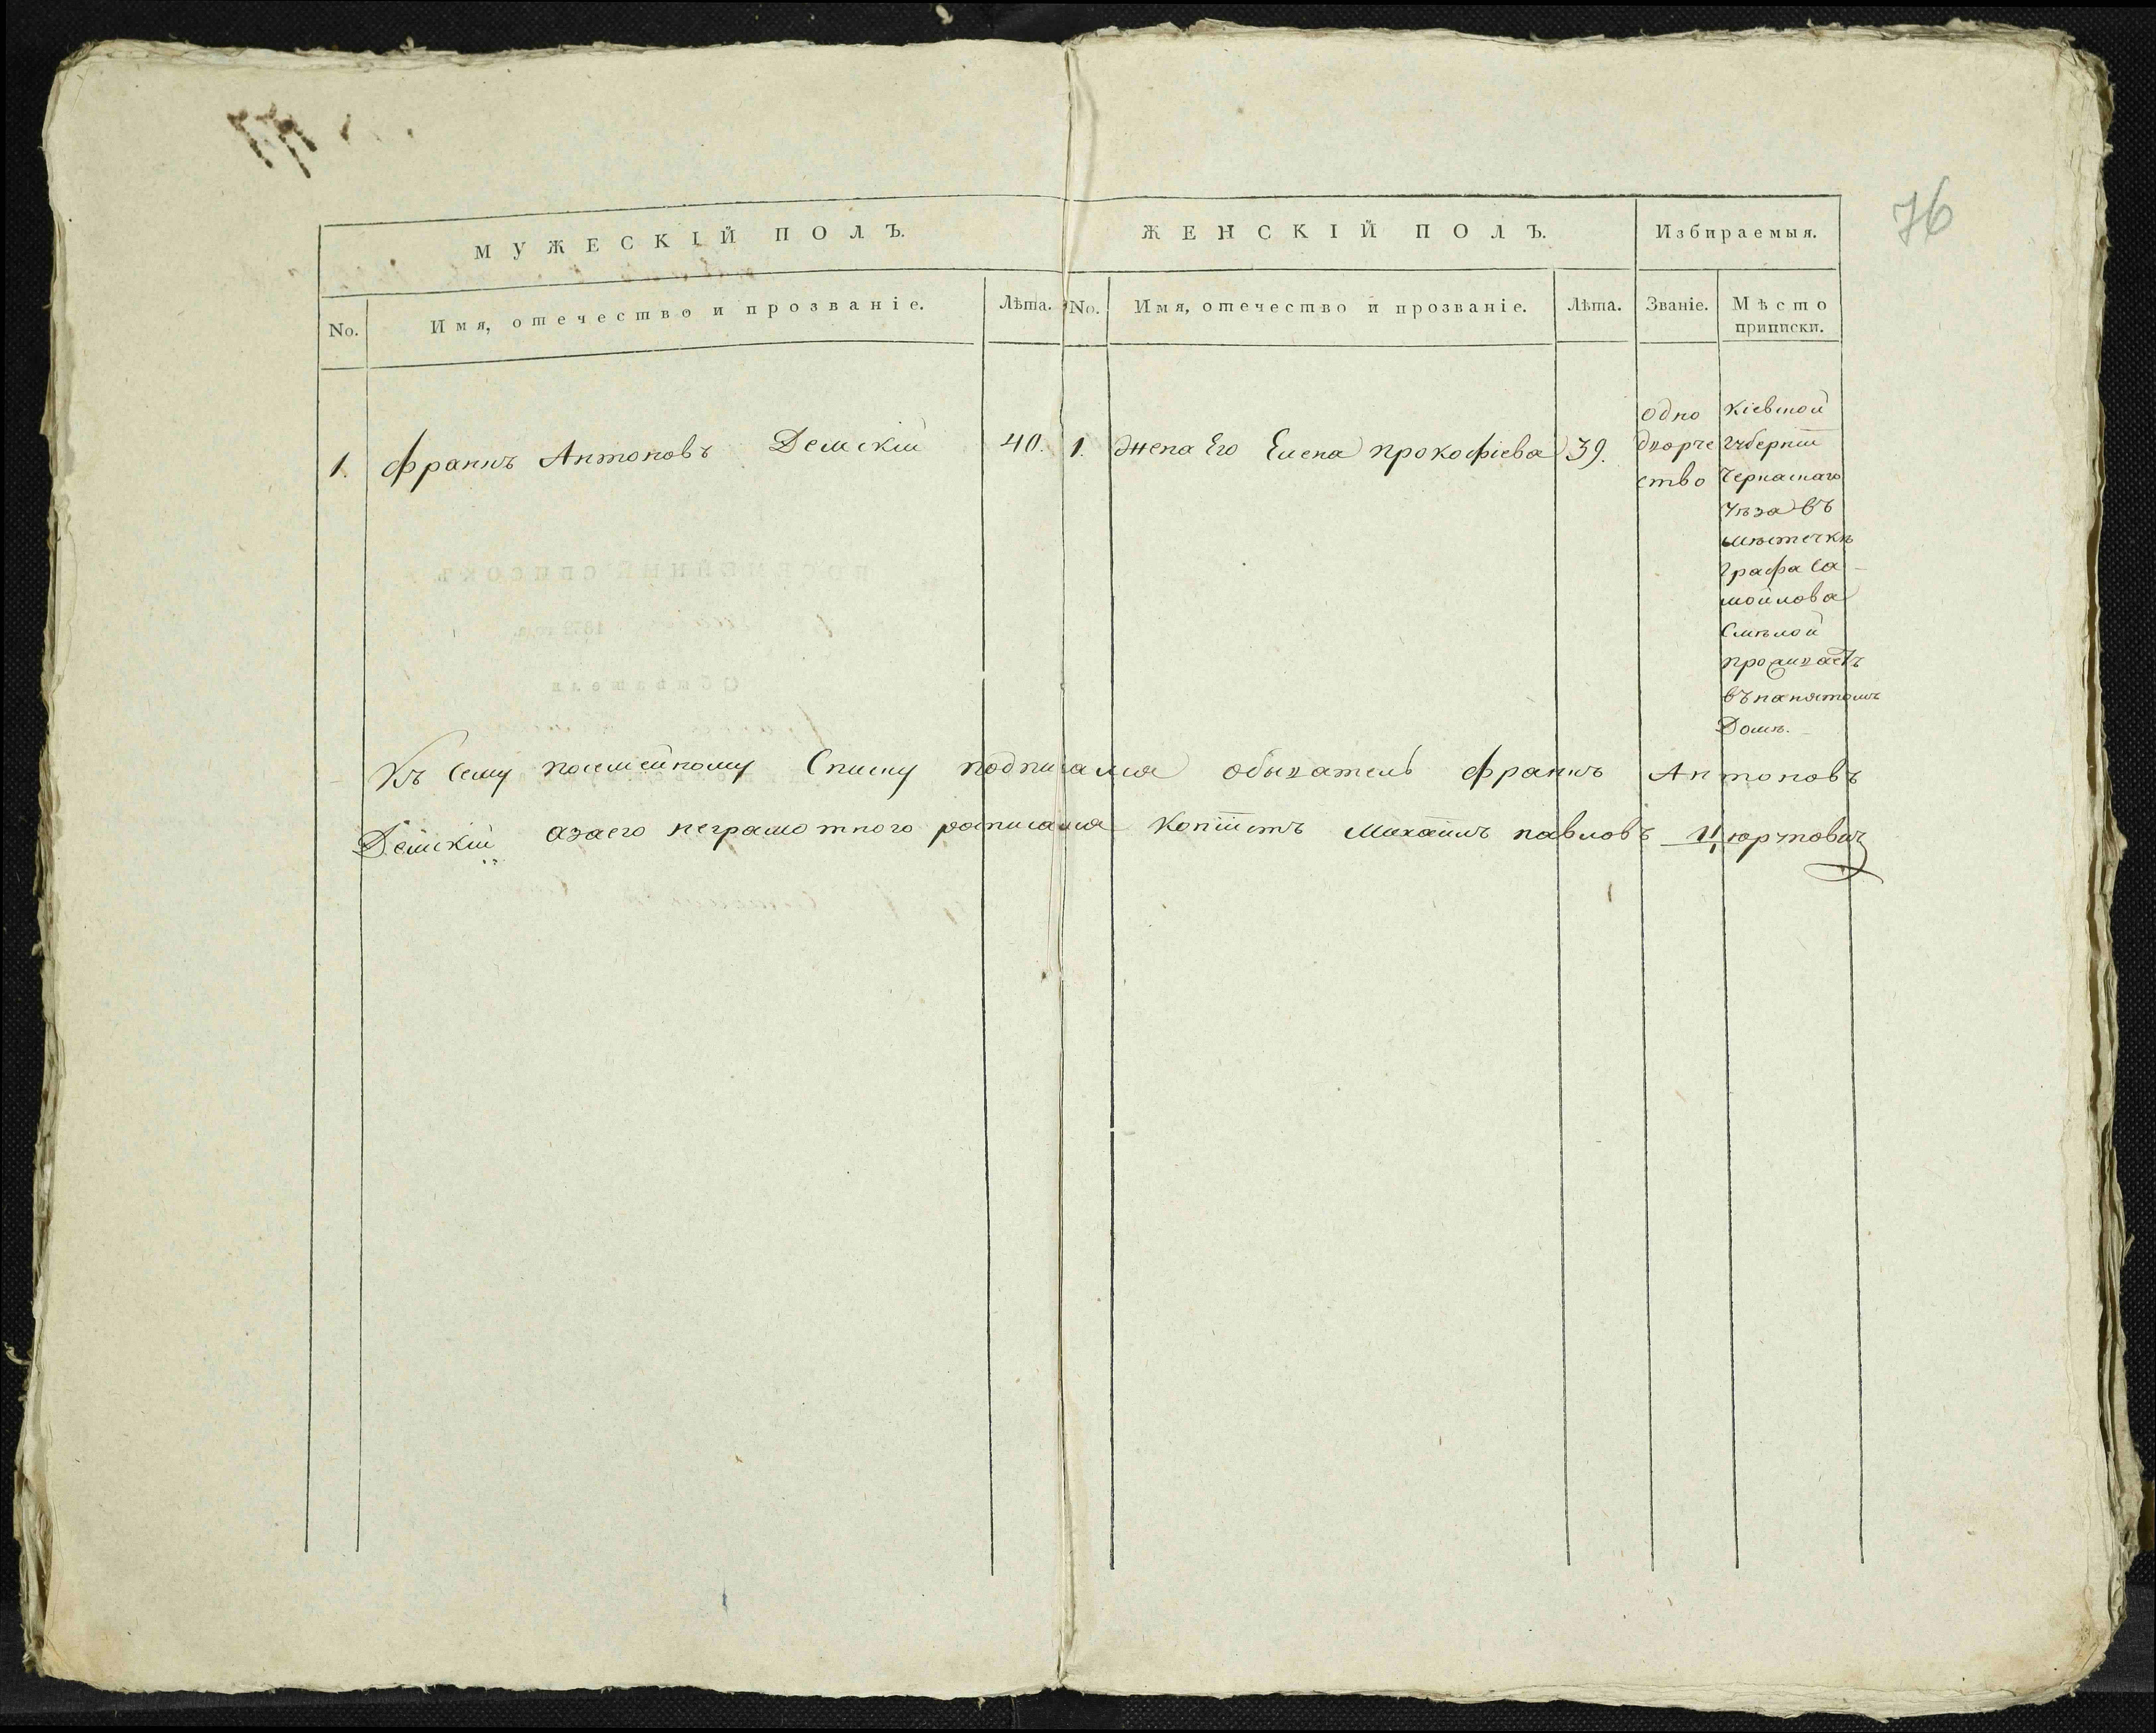 76
МУЖЕСКІЙ ПОЛЪ.
ЖЕНСКІЙ ПОЛЪ.
Избираемыя.
No.
Имя, отечество и прозваніе.
Лѣта.
No.
Имя, отечество и прозваніе.
Лѣта.
Званіе.
Мѣсто
приписки.
1.
Францъ Антоновъ Демскій
40.
1.
Жена Его Елена Прокофіева
39.
Одно
дворче
ство
Кіевской
Губерніи
Черкаскаго
въ
мѣстечкѣ
Графа Са-
мойлова
Смѣлой
проживаетъ
въ нанятомъ
Домѣ.
Къ Сему посемейному Списку подписался обыватель Францъ Антоновъ
Демскій а за его неграмотного росписался Копіистъ Михаилъ Павловъ